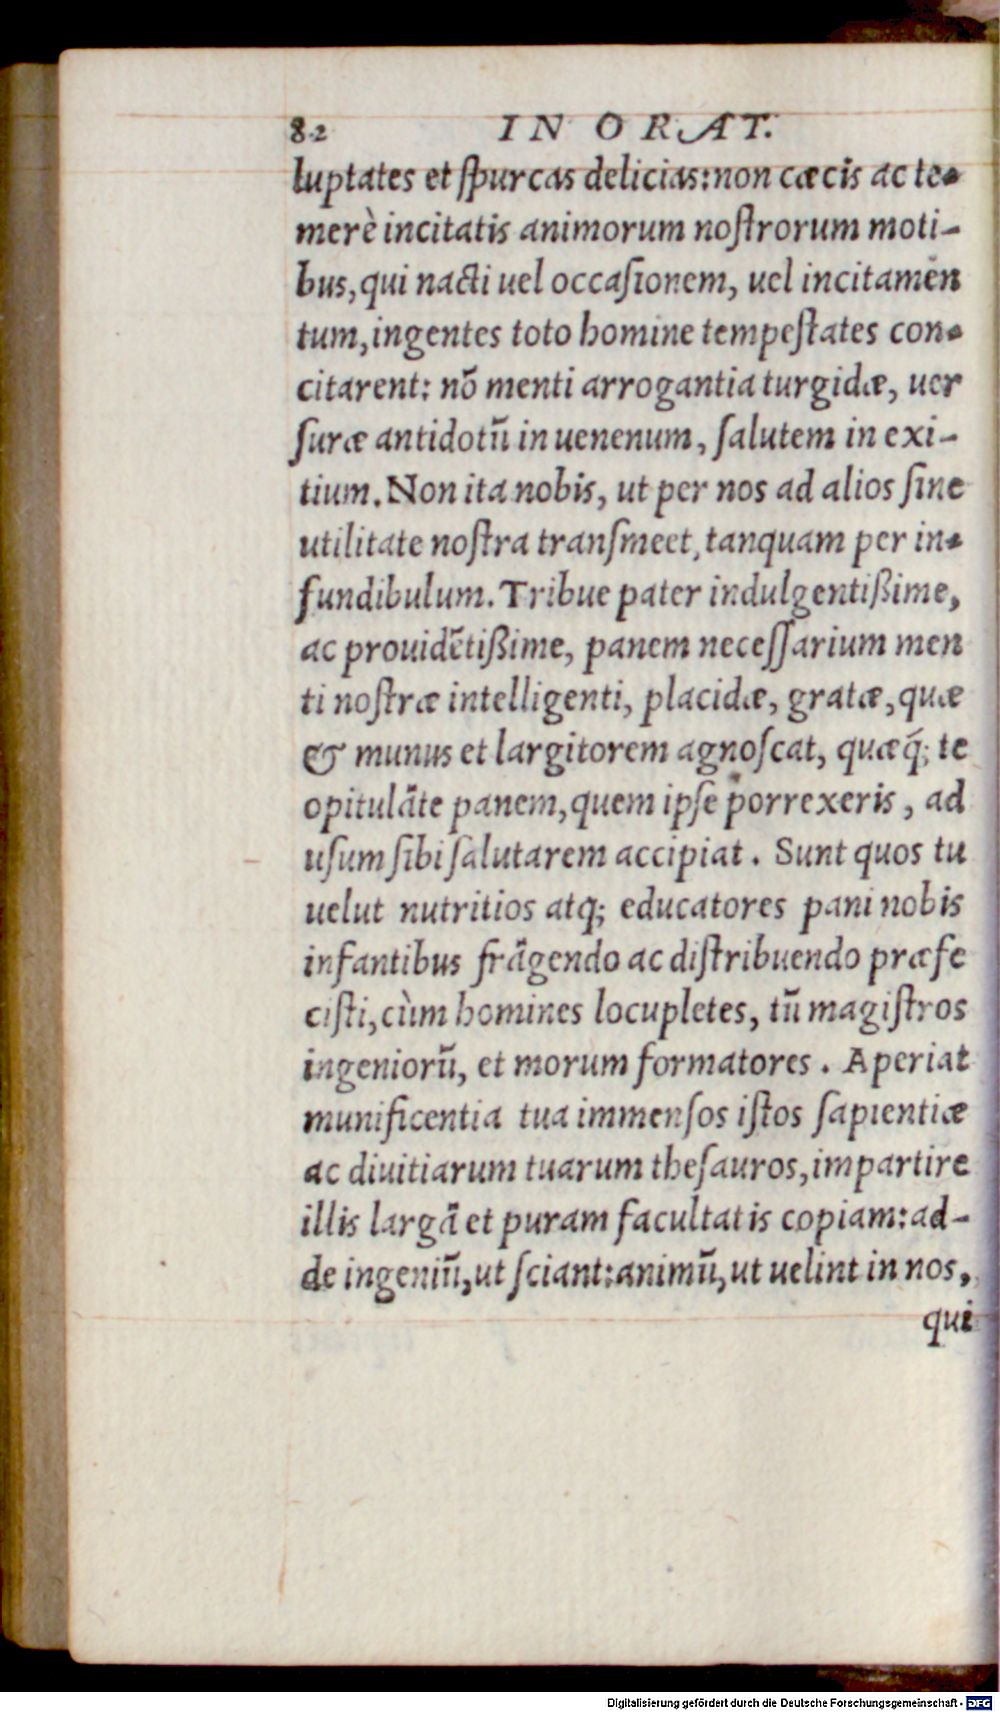 82 IN ORAT.
luptates et ſpurcas delicias: non cæcis ac te-
merè incitatis animorum noſtrorum moti-
bus, qui nacti uel occaſionem, uel incitamen
tum, ingentes toto homine tempeſtates con-
citarent: nō menti arrogantia turgidæ, uer
ſuræ antidotū in uenenum, ſalutem in exi-
tium. Non ita nobis, ut per nos ad alios ſine
utilitate noſtra tranſmeet, tanquam per in-
fundibulum. Tribue pater indulgentißime,
ac prouidētißime, panem neceſſarium men
ti noſtræ intelligenti, placidæ, gratæ, quæ
& munus et largitorem agnoſcat, quæq̃; te
opitulāte panem, quem ipſe porrexeris, ad
uſum ſibi ſalutarem accipiat. Sunt quos tu
uelut nutritios atq; educatores pani nobis
infantibus frāgendo ac diſtribuendo præfe
ciſti, cùm homines locupletes, tū magiſtros
ingeniorū, et morum formatores. Aperiat
munificentia tua immenſos iſtos ſapientiæ
ac diuitiarum tuarum theſauros, impartire
illis largā et puram facultatis copiam: ad-
de ingeniū, ut ſciant: animū, ut uelint in nos,
qui
Digitalisierung gefördert durch die Deutsche Forschungsgemeinschaft - DFG